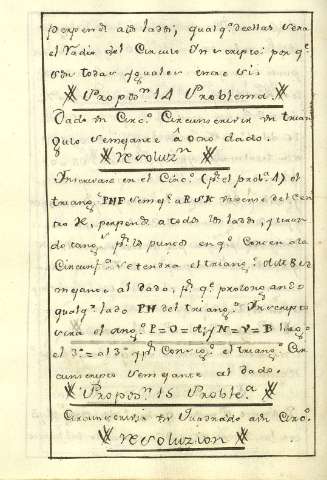 perpendr. a los lados, qualqa. de ellas sera
el Radio del Circulo Ynscripto: por qe.
son todas yguales entre si:
Proposn. 14 Problema.
Dado un Circo. Circunscrivir un trian
gulo semejante â otro dado.
resoluzn.
Inscrivase en el Circo. (pr. el probl. 4) el
triango. PNF semejte. a RSK
tro K, perpends. a todos los lados, y tiran
do tangs. pr. los puntos en qe. Corten a la
Circunfa. se tendra el triango. semejante
mejante al dado, pr. qe. prolongando
qualqa. lado PN del triango. Inscripto
sera el ango. P=O=d; y N=V=B luego
el 3o.=al 3o. y pr. Consigte. el triango. Cir
cunscripto semejante al dado.
Proposn. 15 Problea.
Circunscrivir un Quadrado a un Circo.
resoluzion